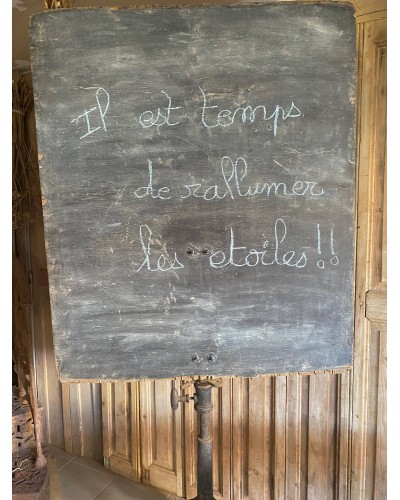 Il est temps
de rallumer
les etoiles!!